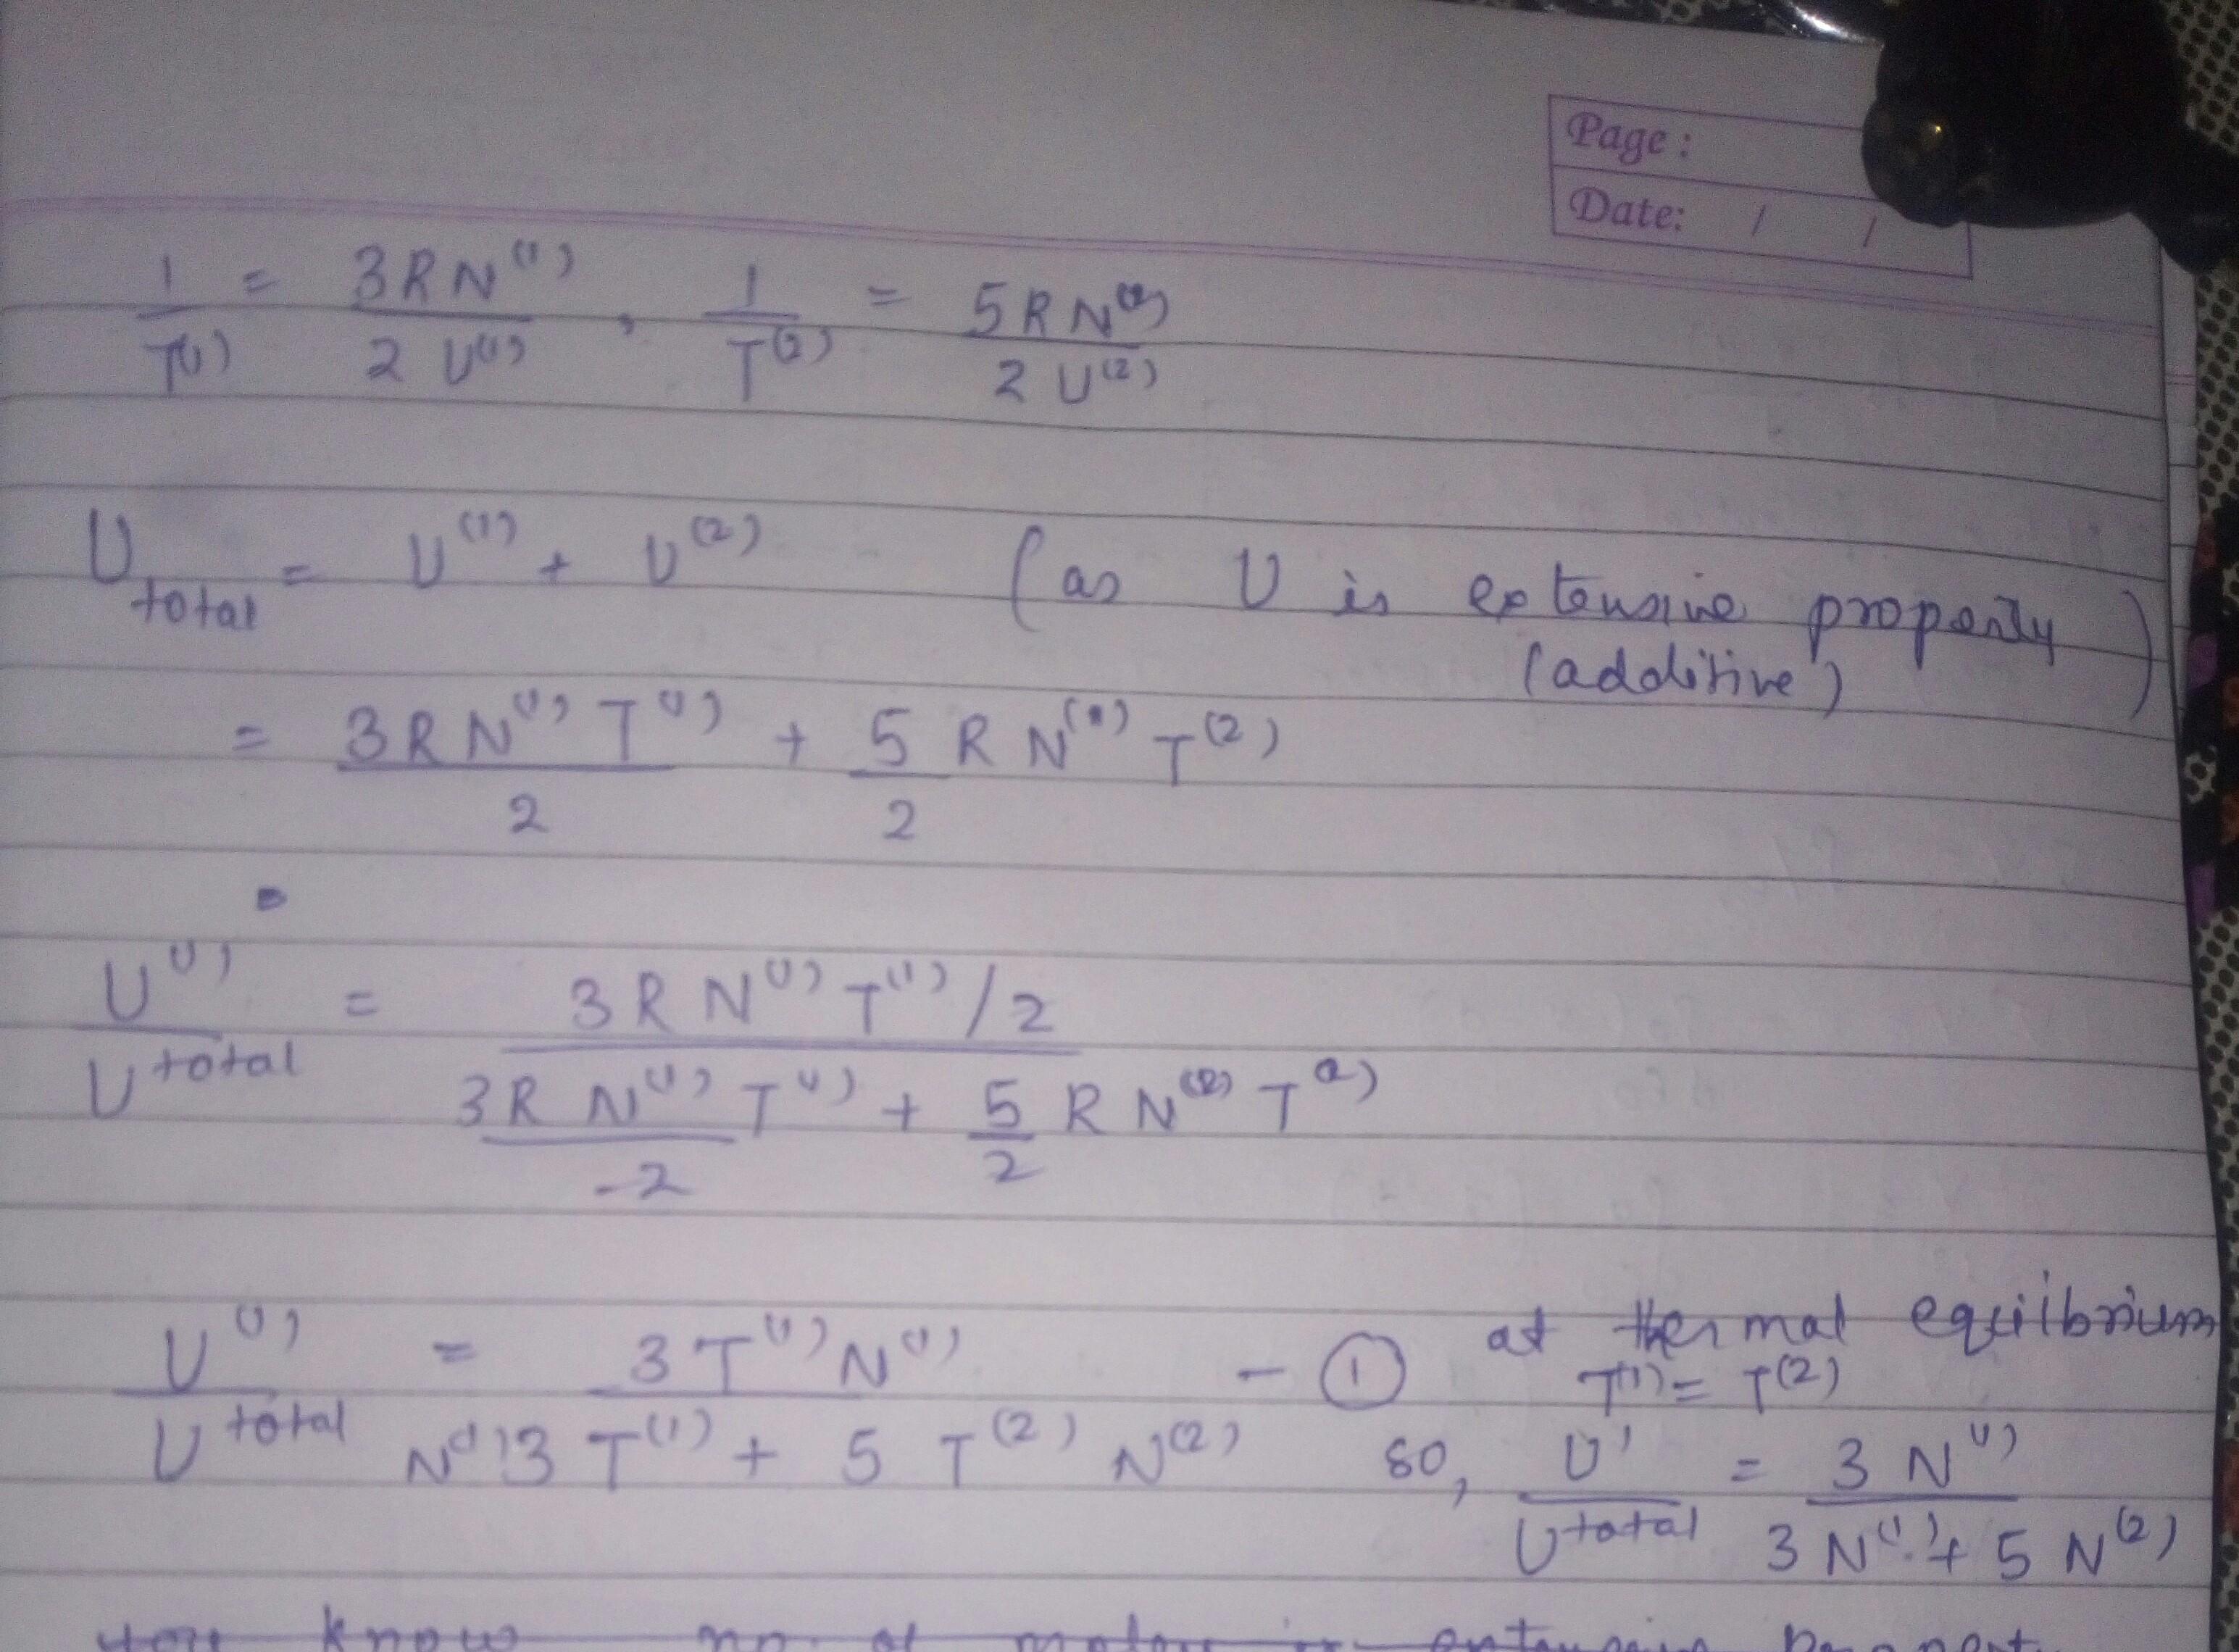 Page :
Date: / /
1/T(1) = 3RN(1)/2U(1) , 1/T(2) = 5RN(2)/2U(2)
U total = U(1) + U(2) (as U is extensive property
(additive) )
= 3RN(1)T(1)/2 + 5/2 RN(2)T(2)
U(1)/U total = (3RN(1)T(1)/2) / (3RN(1)T(1)/2 + 5/2 RN(2)T(2))
U(1)/U total = 3T(1)N(1) / (N(1)3T(1) + 5T(2)N(2)) - ①
at thermal equilibrium
T(1) = T(2)
so, U'/U total = 3N(1) / (3N(1) + 5N(2))
you know no of